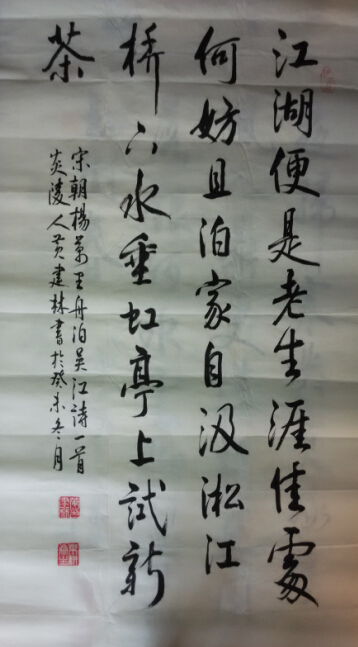 江湖便是老生涯佳處
何妨且泊家自汲淞江
桥下水垂虹亭上試新
茶
宋朝楊萬里舟泊吴江詩一首
炎陵人黄建林書於癸未冬月